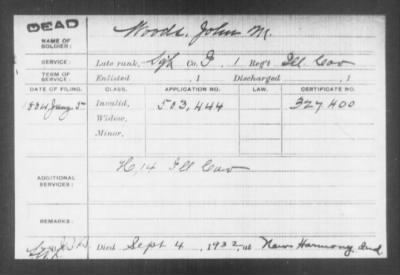 DEAD
Woods, John M.
NAME OF SOLDIER:
SERVICE: Late rank, Co. 1 Reg't Ill Cav
TERM OF SERVICE: Enlisted , 1 Discharged , 1
DATE OF FILING. CLASS. APPLICATION NO. LAW. CERTIFICATE NO.
Invalid, 503,444 327400
Widow,
Minor,
ADDITIONAL SERVICES: H, 14 Ill Cav
REMARKS:
Died Sept 4, 1932, at New Harmony, Ind